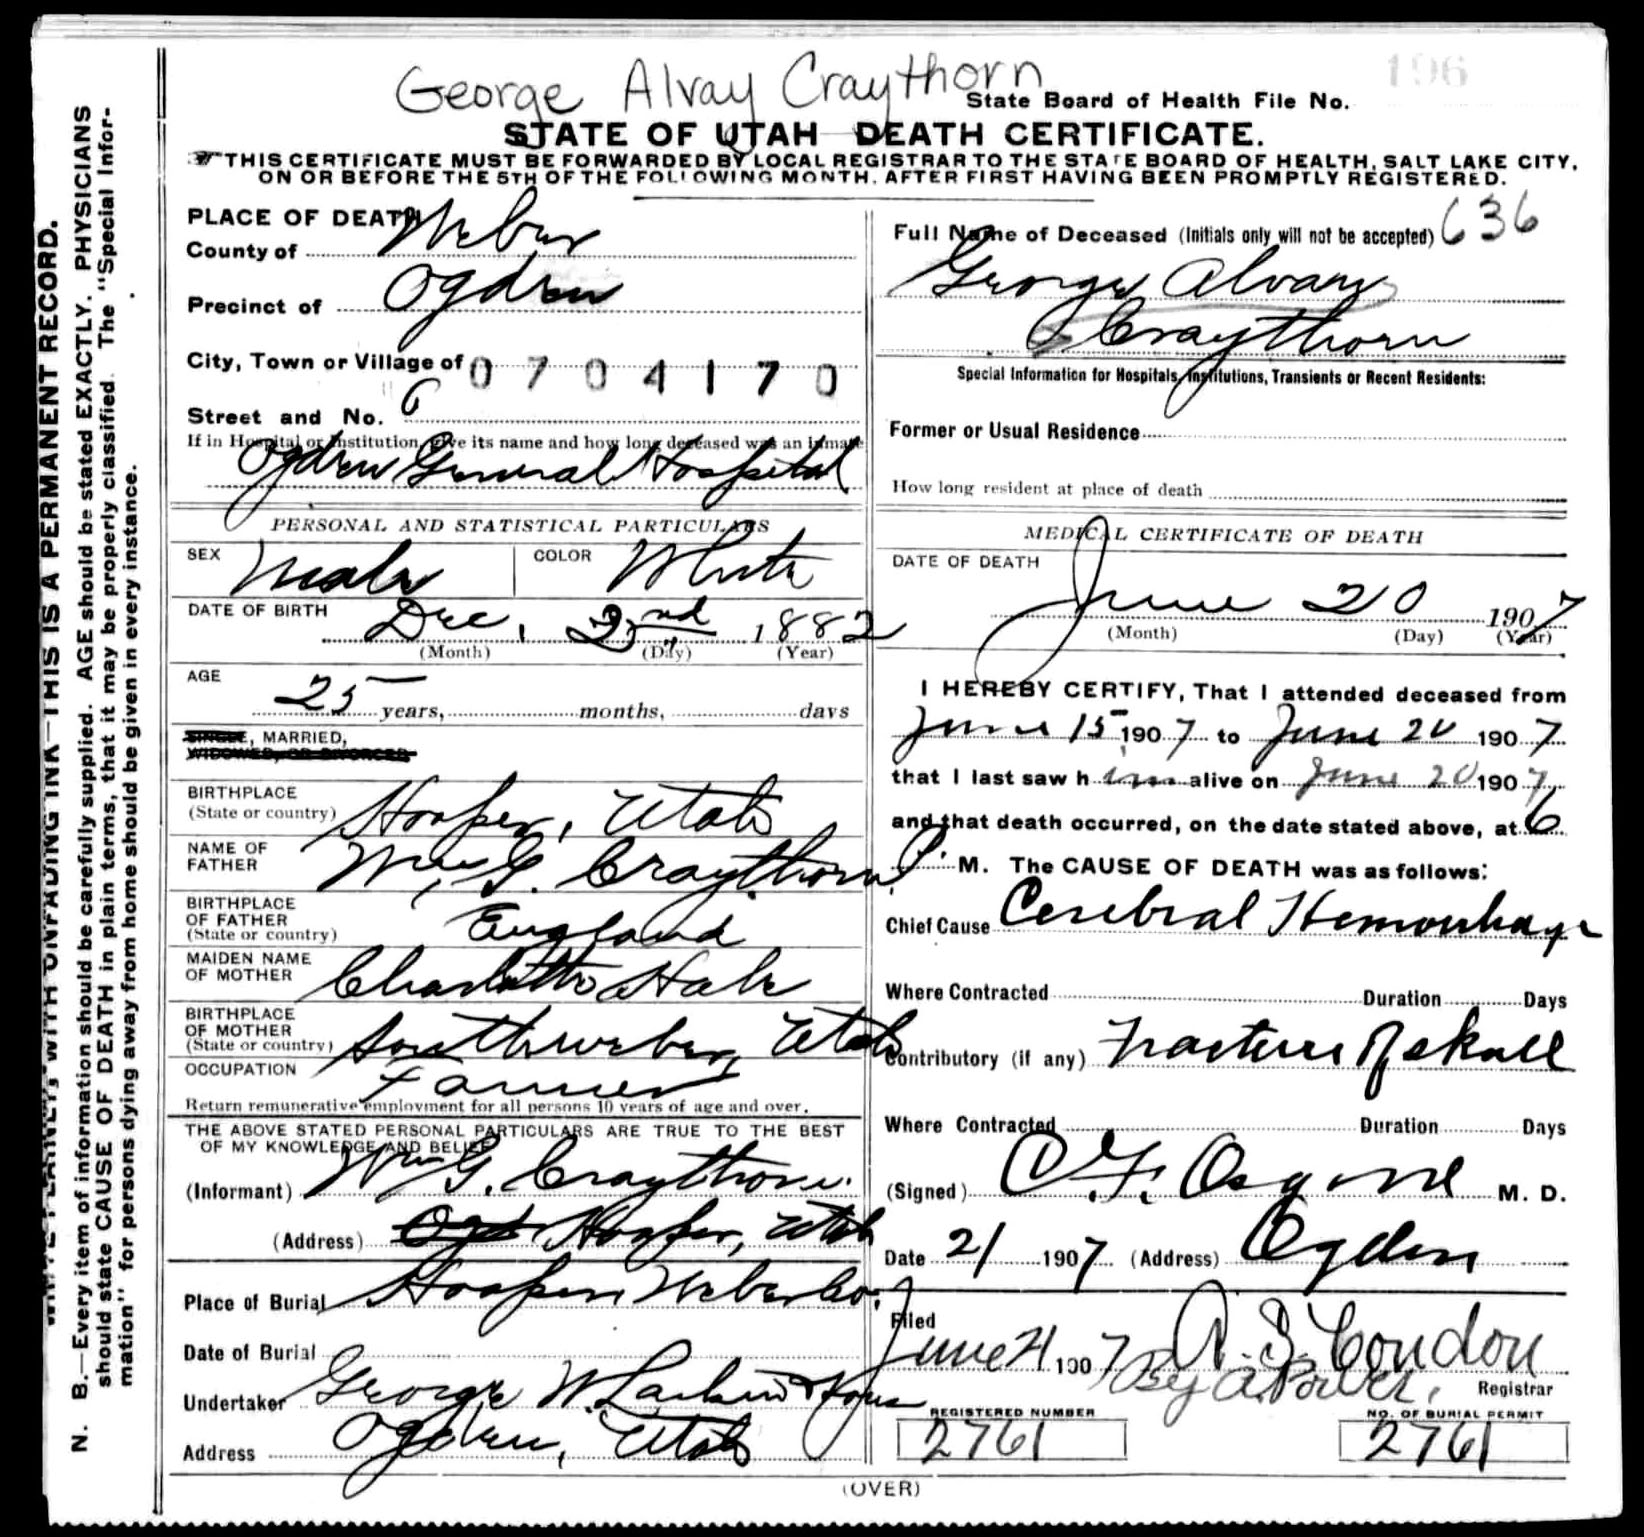 George Alvay Craythorn
196
State Board of Health File No.
STATE OF UTAH DEATH CERTIFICATE.
THIS CERTIFICATE MUST BE FORWARDED BY LOCAL REGISTRAR TO THE STATE BOARD OF HEALTH, SALT LAKE CITY,
ON OR BEFORE THE 5TH OF THE FOLLOWING MONTH, AFTER FIRST HAVING BEEN PROMPTLY REGISTERED.
WRITE PLAINLY, WITH UNFADING INK—THIS IS A PERMANENT RECORD.
N. B.—Every item of information should be carefully supplied. AGE should be stated EXACTLY. PHYSICIANS
should state CAUSE OF DEATH in plain terms, that it may be properly classified. The "Special Infor-
mation" for persons dying away from home should be given in every instance.
PLACE OF DEATH
County of Weber
Precinct of Ogden
City, Town or Village of 0704170
Street and No.
If in Hospital or Institution, give its name and how long deceased was an inmate
Ogden General Hospital
PERSONAL AND STATISTICAL PARTICULARS
SEX Male COLOR White
DATE OF BIRTH Dec, 2nd 1882
(Month) (Day) (Year)
AGE
25 years, months, days
SINGLE, MARRIED,
WIDOWED, OR DIVORCED
BIRTHPLACE
(State or country) Hooper, Utah
NAME OF
FATHER Wm G. Craythorn
BIRTHPLACE
OF FATHER
(State or country) England
MAIDEN NAME
OF MOTHER Charlotte Hale
BIRTHPLACE
OF MOTHER
(State or country) Southweber, Utah
OCCUPATION Farmer
Return remunerative employment for all persons 10 years of age and over.
THE ABOVE STATED PERSONAL PARTICULARS ARE TRUE TO THE BEST
OF MY KNOWLEDGE AND BELIEF
(Informant) Wm G. Craythorn.
(Address) Hooper, Utah
Place of Burial Hooper, Weber Co.
Date of Burial
Undertaker George W. Larkin & Sons
Address Ogden, Utah
Full Name of Deceased (Initials only will not be accepted) 636
George Alvay
Craythorn
Special Information for Hospitals, Institutions, Transients or Recent Residents:
Former or Usual Residence
How long resident at place of death
MEDICAL CERTIFICATE OF DEATH
DATE OF DEATH
June 20 1907
(Month) (Day) (Year)
I HEREBY CERTIFY, That I attended deceased from
June 15 1907 to June 20 1907
that I last saw him alive on June 20 1907,
and that death occurred, on the date stated above, at 6
P. M. The CAUSE OF DEATH was as follows:
Chief Cause Cerebral Hemorrhage
Where Contracted Duration Days
Contributory (if any) Fracture of skull
Where Contracted Duration Days
(Signed) C. F. Osgood M. D.
Date 21 1907 (Address) Ogden
Filed
June 21 1907 A. S. Condon
By A. Power, Registrar
REGISTERED NUMBER
2761
NO. OF BURIAL PERMIT
2761
(OVER)